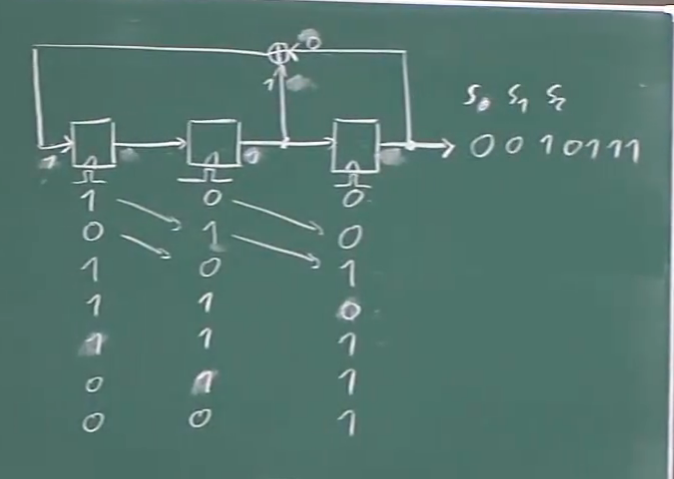 ⊕ 0
1
S₀ S₁ S₂
0 0 1 0 1 1 1
1 0 0
0 1 0
1 0 1
1 1 0
1 1 1
0 1 1
0 0 1